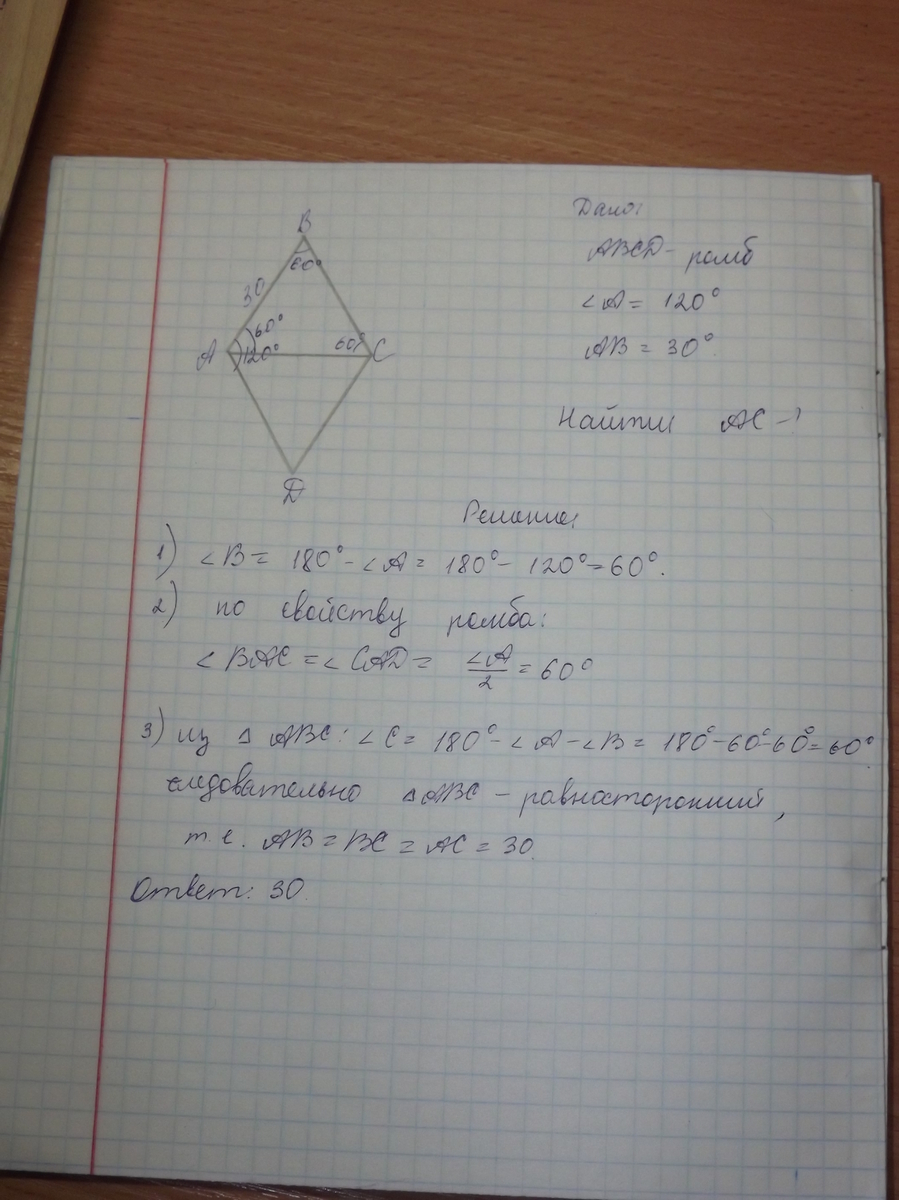 B
60°
30
60°
A
120°
60°
C
D
Дано:
ABCD - ромб
∠A = 120°
AB = 30°
Найти AC - ?
Решение:
1) ∠B = 180° - ∠A = 180° - 120° = 60°.
2) по свойству ромба:
∠BAC = ∠CAD = ∠A/2 = 60°
3) из △ ABC: ∠C = 180° - ∠A - ∠B = 180° - 60° - 60° = 60°
следовательно △ABC - равносторонний,
т.е. AB = BC = AC = 30.
Ответ: 30.